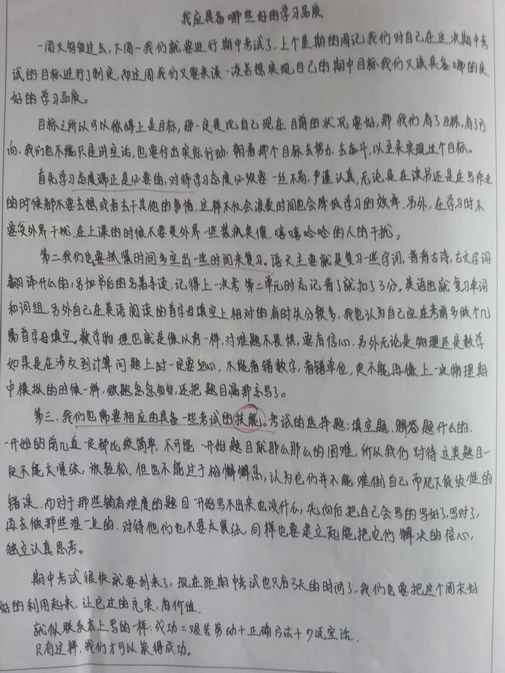 我应具备哪些好的学习品质
一周又匆匆过去,下周一我们就要进行期中考试了,上个星期的周记我们对自己在这次期中考
试的目标进行了制定,而这周我们又要来谈一谈若想实现自己的期中目标我们又该具备哪些良
好的学习品质。
目标之所以可以称得上是目标,那一定是比自己现在目前的状况要好,那我们有了目标,有了方
向,我们也不能只是讲空话,也要付出实际行动,朝着那个目标去努力、去奋斗,以至来实现这个目标。
首先学习态度端正是必要的,对待学习态度必须要一丝不苟,严谨认真,无论是在读书还是在写作业
的时候都不要去想或者去干其他的事情,这样不仅会浪费时间也会降低学习的效率。另外,在学习时不
要受外界干扰,在上课的时候不要受外界一些装疯卖傻,嘻嘻哈哈的人的干扰。
第二我们也要抓紧时间多空出一些时间来复习,语文主要就是复习一些字词,背背古诗,古文字词
翻译什么的,名扣节的名著导读,记得上一次考第二单元时忘记看了就扣了3分。英语也就复习单词
和词组,另外自己在英语阅读的首字母填空上相对的有时扣分很多,我也认为自己应在考前多做个几
篇首字母填空。数学物理也就是像以前一样,对难题不畏惧,要有信心,另外无论是物理还是数学
如果是在涉及到计算问题上时一定要细心,不能看错数字,看错单位,更不能再像上一次物理期
中模拟的时候一样,做题急急匆匆,还把题目漏到忘写了。
第三,我们也需要相应的具备一些考试的技能。考试的选择题,填空题,解答题什么的,
一开始的前几道一定都比较简单,不可能一开始题目就那么那么的困难,所以我们对待这类题目一
定不能太紧张,放轻松,但也不能过于松懈懈怠,认为它们并不能难倒自己而犯下较低级的
错误,而对于那些稍有难度的题目一开始写不出来也没什么,先向后把自己会写的写好了,写对了,
再去做那些难一点的,对待他们也不要太紧张,同样也要建立起能把它们解决的信心,
独立认真思考。
期中考试很快就要到来了,现在距期中考试也只有3天的时间了,我们也要把这个周末好
好的利用起来,让它过的充实,有价值。
就像联系本上写的一样,成功=艰苦劳动+正确方法+少说空话。
只有这样,我们才可以获得成功。